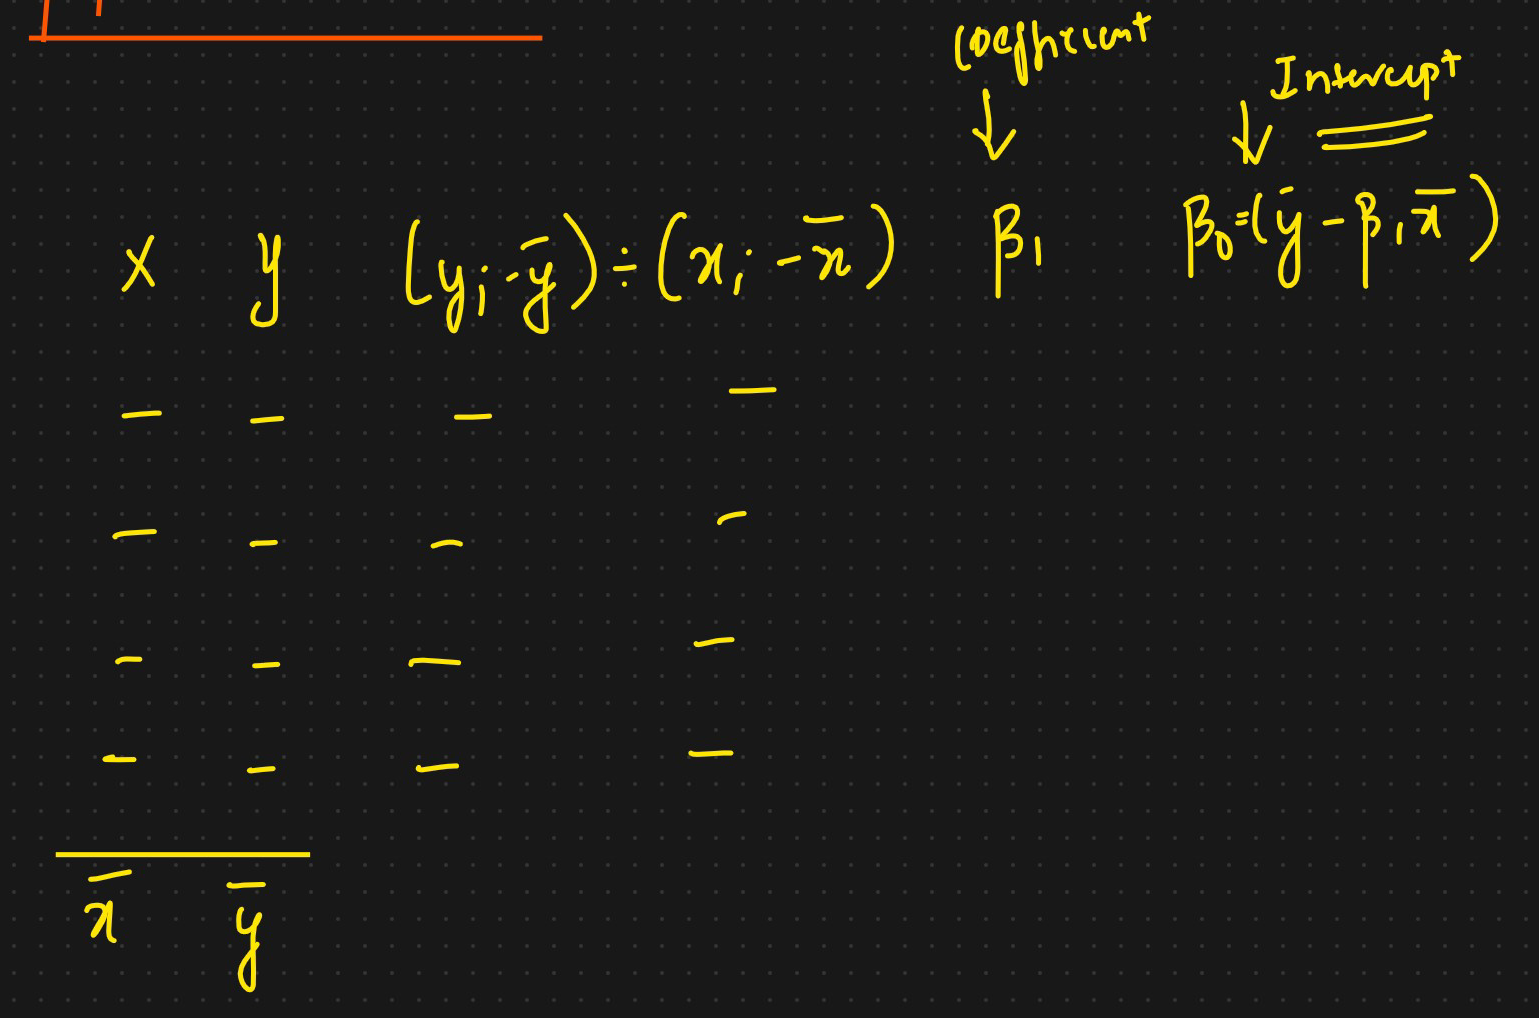 Coefficient
Intercept
x y (yi - ȳ) ÷ (xi - x̄) β1 β0 = (ȳ - β1 x̄)
- - - -
- - - -
- - - -
- - - -
x̄ ȳ